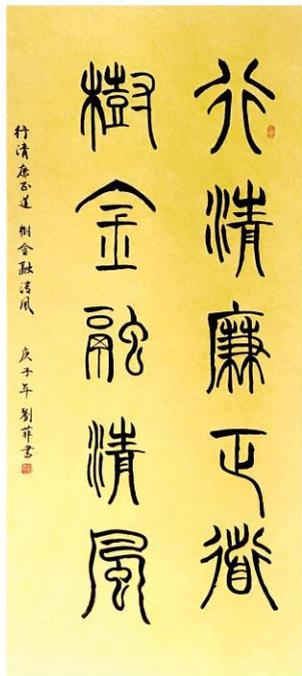 行清廉正道
樹金融清風
行清廉正道 樹金融清風 庚子年 劉菲書